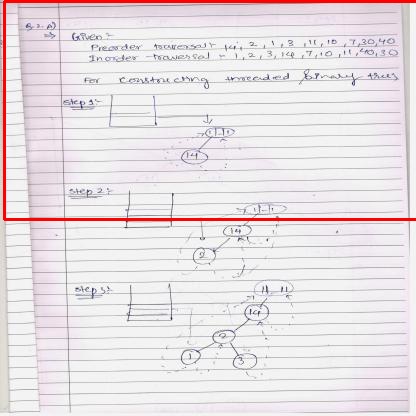 Q.2.A)
⇒ Given:-
Preorder traversal:- 14, 2, 1, 3, 11, 10, 7, 30, 40
Inorder traversal - 1, 2, 3, 14, 7, 10, 11, 40, 30
For constructing threaded binary tree
Step 1:-
14
Step 2:-
14
2
Step 3:-
14
2
1 3